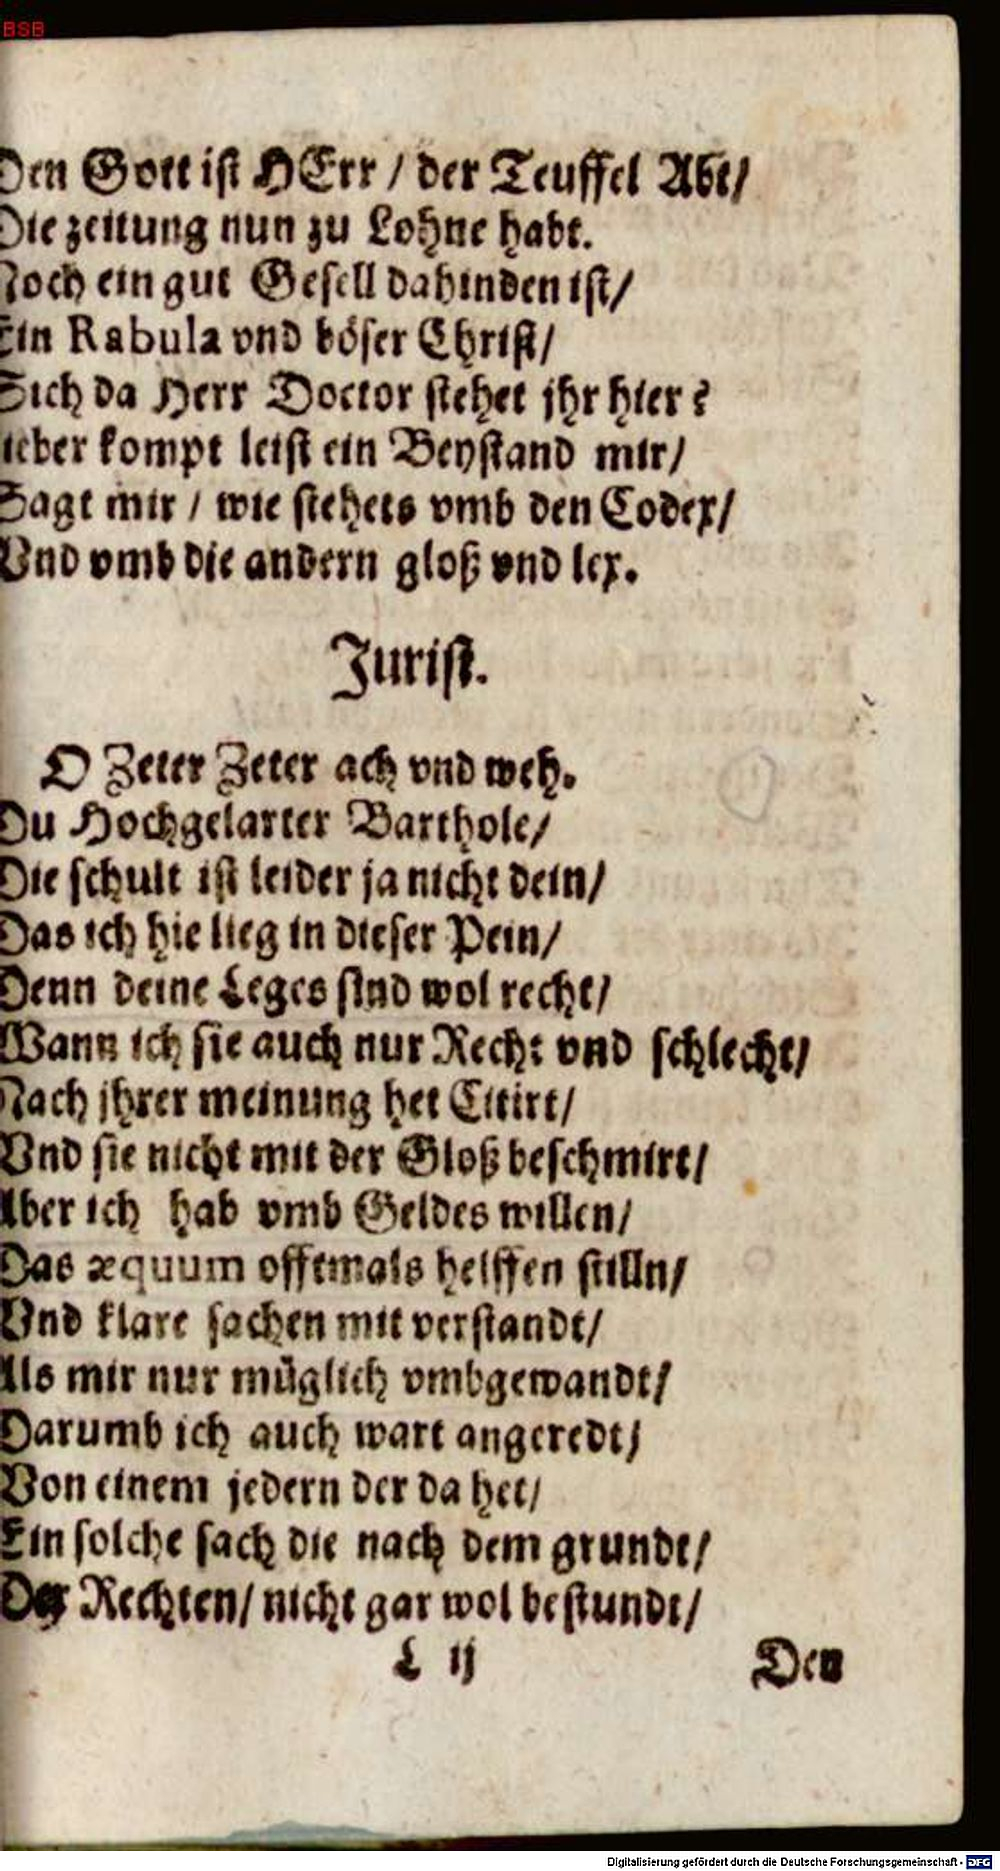 BSB
Den Gott ist HErr / der Teuffel Abt/
Die zeitung nun zu Lohne habt.
Noch ein gut Gesell dahinden ist/
Ein Rabula vnd böser Christ/
Sich da Herr Doctor stehet jhr hier?
lieber kompt leist ein Beystand mir/
Sagt mir / wie stehets vmb den Codex/
Vnd vmb die andern gloß vnd lex.
Jurist.
O Zeter Zeter ach vnd weh.
Du Hochgelarter Barthole/
Die schult ist leider ja nicht dein/
Das ich hie lieg in dieser Pein/
Denn deine Leges sind wol recht/
Wann ich sie auch nur Recht vnd schlecht/
Nach jhrer meinung het Citirt/
Vnd sie nicht mit der Gloß beschmirt/
Aber ich hab vmb Geldes willen/
Das æquum offtmals helffen stilln/
Vnd klare sachen mit verstandt/
Als mir nur müglich vmbgewandt/
Darumb ich auch wart angeredt/
Von einem jedern der da het/
Ein solche sach die nach dem grundt/
Der Rechten/ nicht gar wol bestundt/
L ij Den
Digitalisierung gefördert durch die Deutsche Forschungsgemeinschaft - DFG